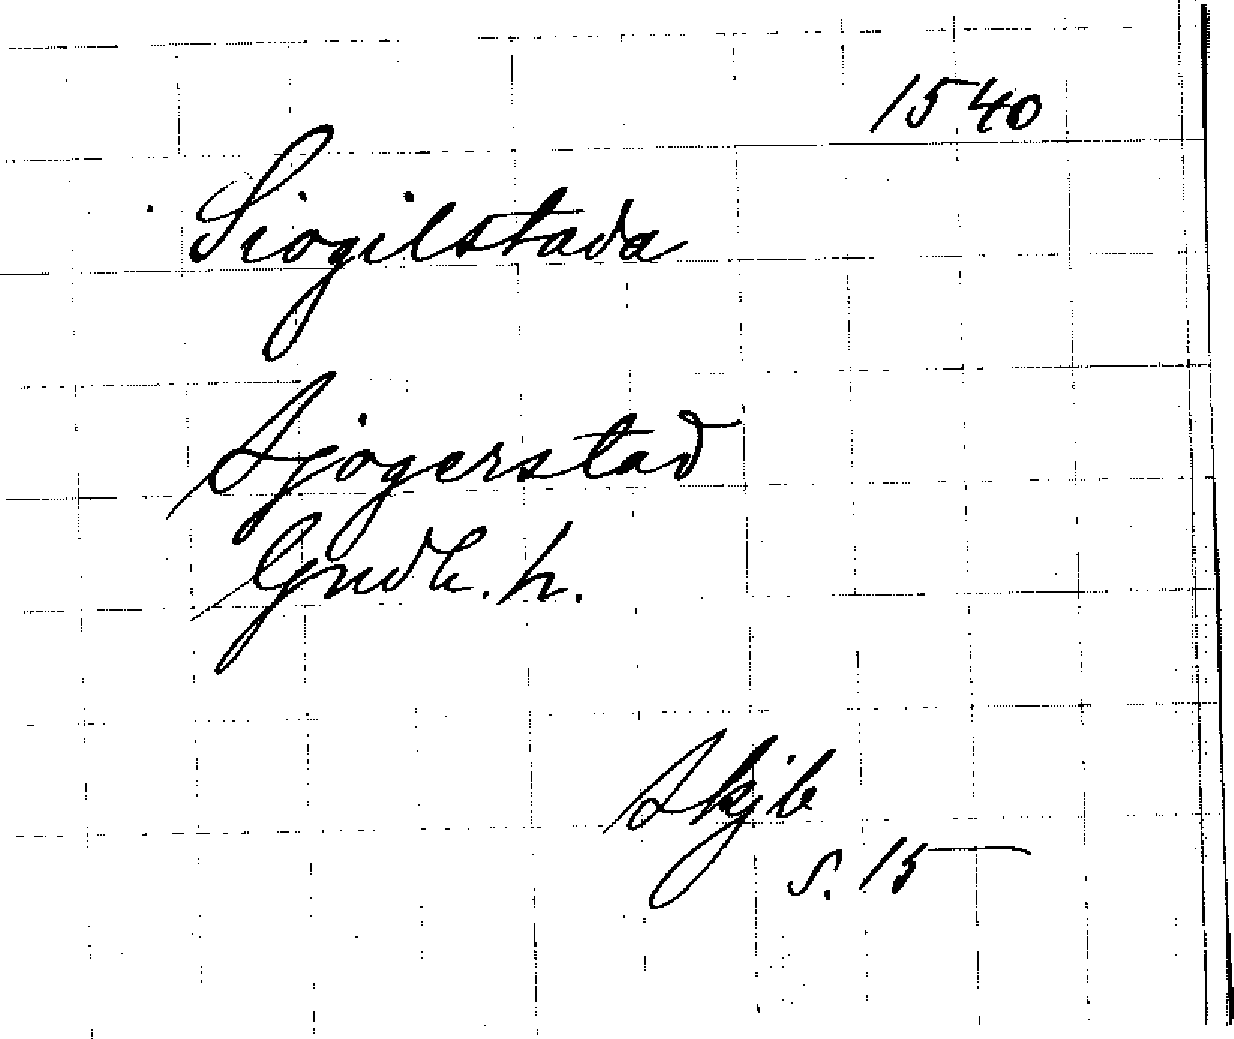 1540
Siogilstada
Sjögerstad
Gudh. h.
Skjb
s. 15